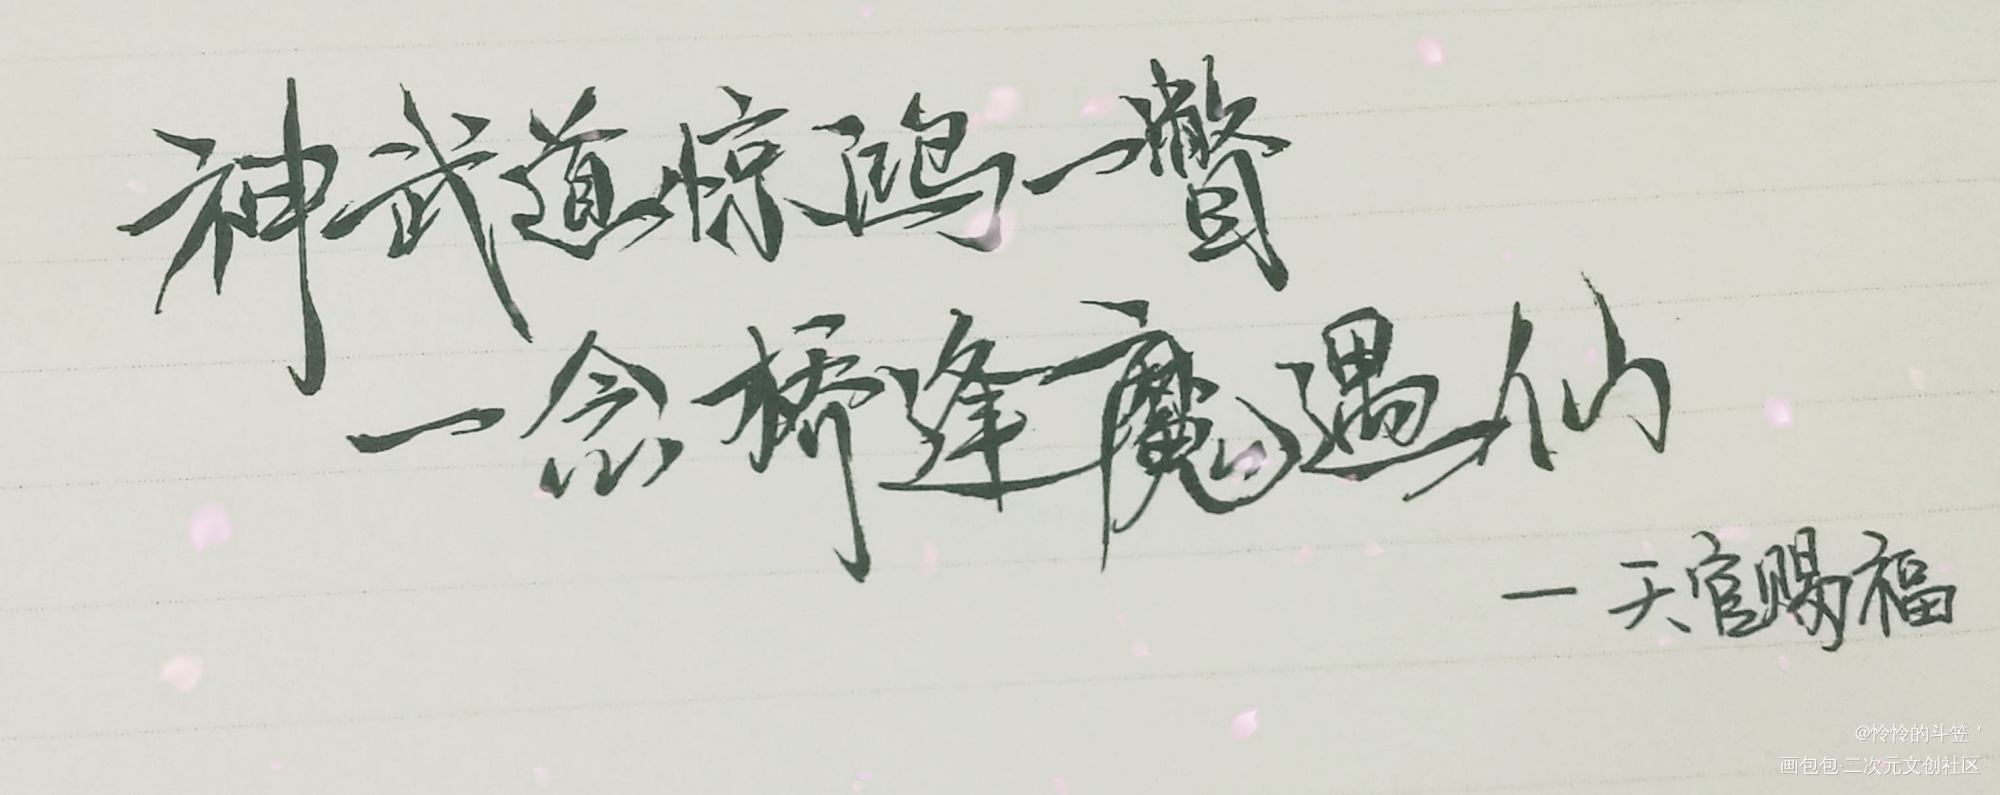 神武道惊鸿一瞥
一念桥逢魔遇仙
一天官赐福
@怜怜的斗笠 '
画包包·二次元文创社区